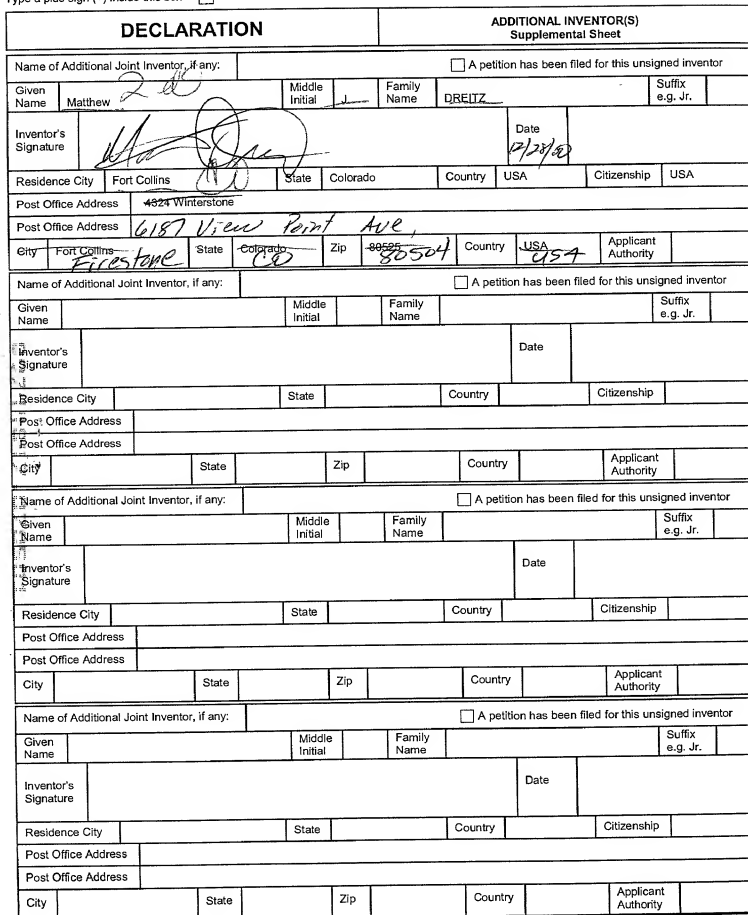 DECLARATION
ADDITIONAL INVENTOR(S)
Supplemental Sheet
Name of Additional Joint Inventor, if any:
A petition has been filed for this unsigned inventor
Given Name Matthew Middle Initial J Family Name DREITZ Suffix e.g. Jr.
Inventor's Signature Date 12/28/00
Residence City Fort Collins State Colorado Country USA Citizenship USA
Post Office Address 4324 Winterstone
Post Office Address 6187 View Point Ave,
City Fort Collins Firestone State Colorado CO Zip 80525 80504 Country USA USA Applicant Authority
Name of Additional Joint Inventor, if any: A petition has been filed for this unsigned inventor
Given Name Middle Initial Family Name Suffix e.g. Jr.
Inventor's Signature Date
Residence City State Country Citizenship
Post Office Address
Post Office Address
City State Zip Country Applicant Authority
Name of Additional Joint Inventor, if any: A petition has been filed for this unsigned inventor
Given Name Middle Initial Family Name Suffix e.g. Jr.
Inventor's Signature Date
Residence City State Country Citizenship
Post Office Address
Post Office Address
City State Zip Country Applicant Authority
Name of Additional Joint Inventor, if any: A petition has been filed for this unsigned inventor
Given Name Middle Initial Family Name Suffix e.g. Jr.
Inventor's Signature Date
Residence City State Country Citizenship
Post Office Address
Post Office Address
City State Zip Country Applicant Authority